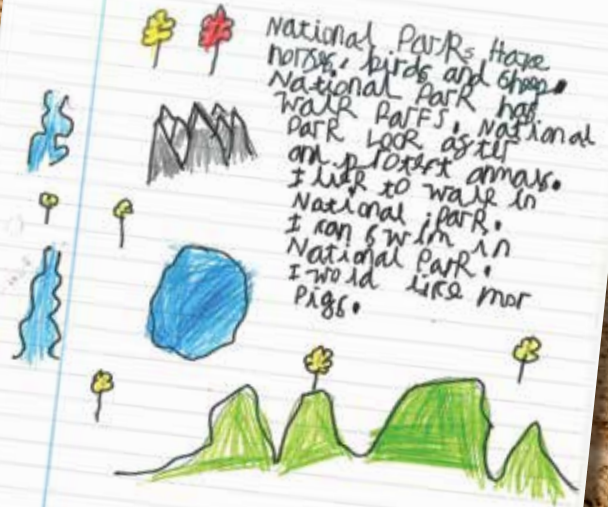 National Parks Have
horses, birds and sheep.
National Park has
walk Parfs, National
Park look after
and protert anmals.
I like to walk in
National park.
I can swim in
National Park.
I wold like mor
Pigs.